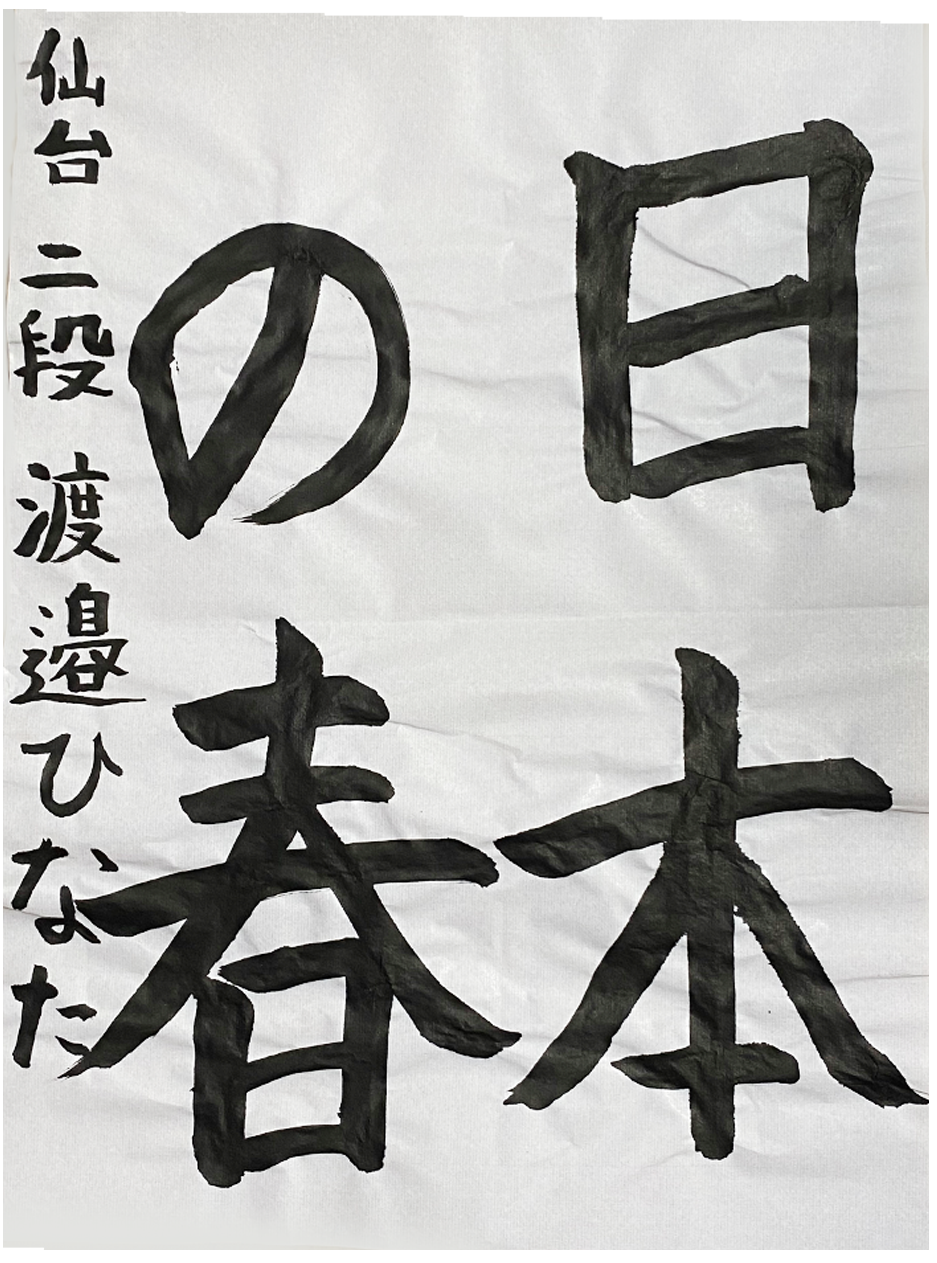 日本
の春
仙台 二段 渡邉ひなた